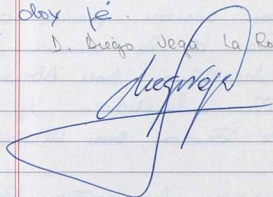 doy fé.
D. Diego Vega La Ro
diegoVega